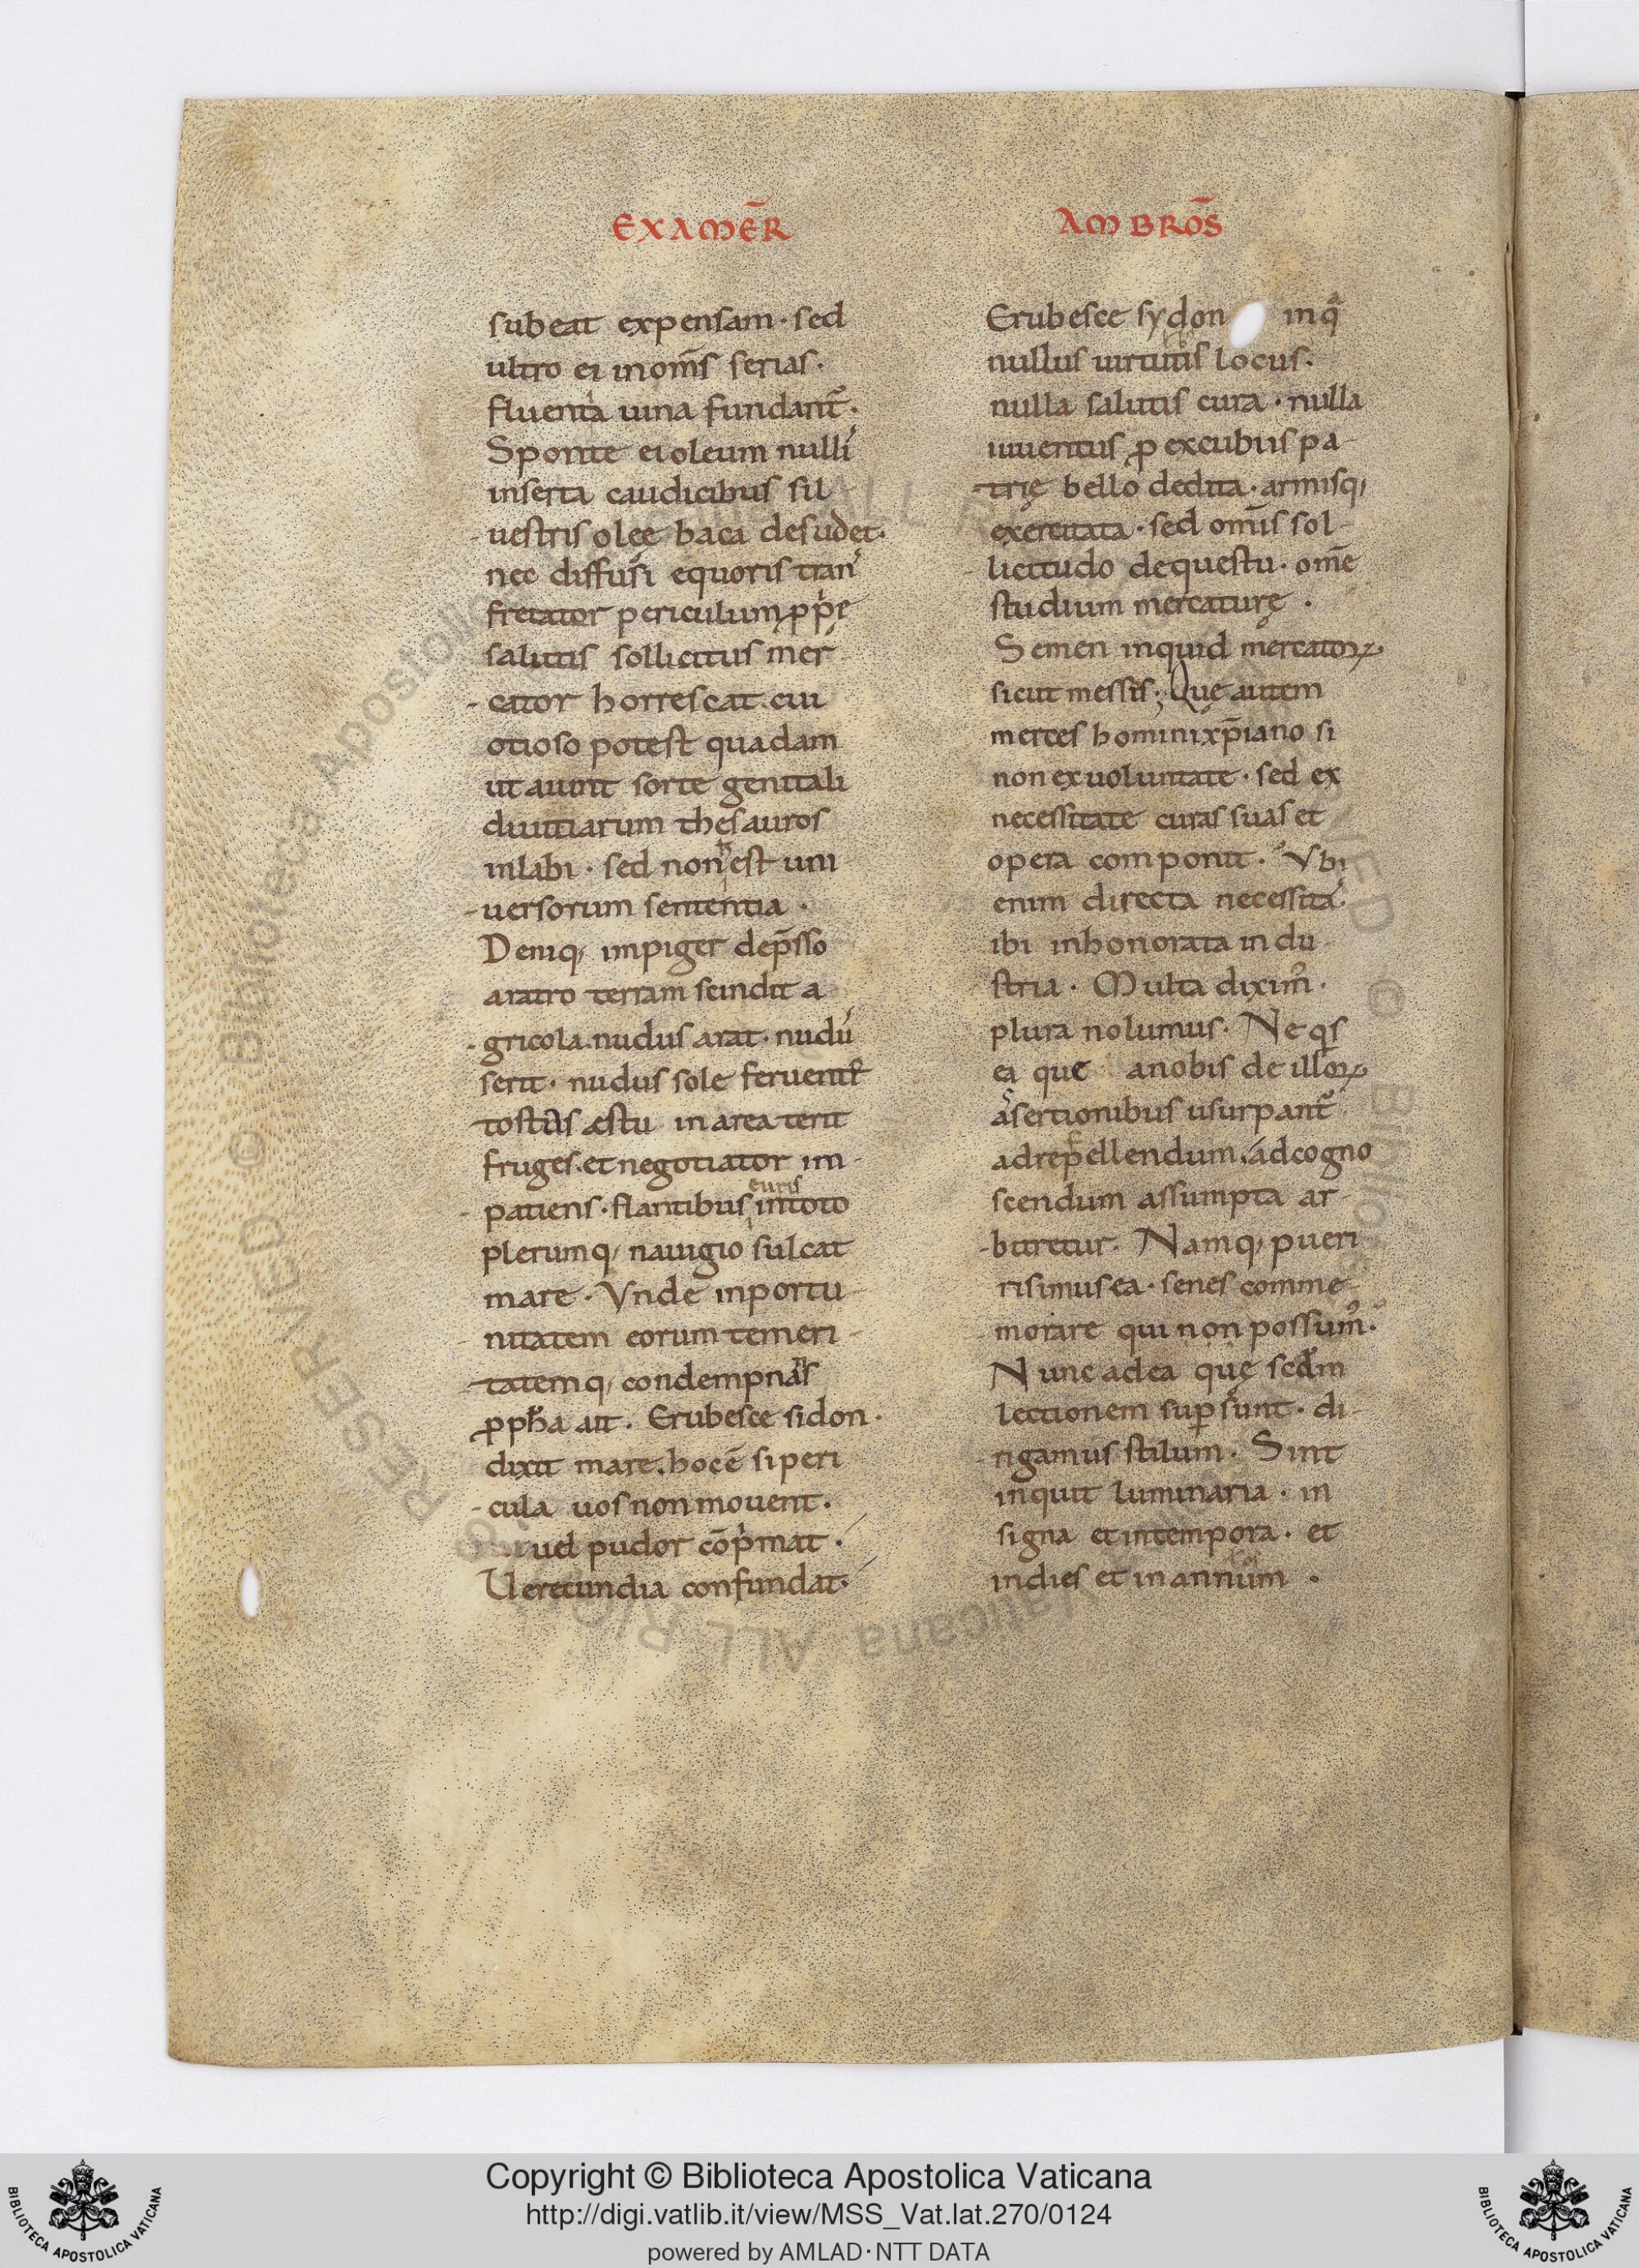 EXAMER̄
subeat expensam · sed
ultro ei in om̄s serias ·
fluenta uina fundant᷑ ·
Sponte ei oleum nulli
inserta caudicibus sil
uestris oleę baca desudet ·
nec diffusi equoris tran
fretator periculum ꝓp̄e
salutis sollicitus mer
cator horrescat · cui
otioso potest quadam
ut aiunt sorte genitali
diuitiarum thesauros
inlabi · sed non est uni
uersorum sententia ·
Deniq; impiger dep̄sso
aratro terram scindit a
gricola · nudus arat · nudu
serit · nudus sole feruent᷑
tostus æstu in area terit
fruges · et negotiator im
euris
patiens · flantibus in toto
plerumq; nauigio sulcat
mare · Vnde inportu
nitatem eorum temeri
tatemq; condempnans
ꝓpha ait · Erubesce sidon ·
dixit mare · hoc ē si peri
cula uos non mouent ·
uel pudor cōp̄mat ·
Uerecundia confundat ·
AMBROS̄
Erubesce sydon in qͣ
nullus uirtutis locus ·
nulla salutis cura · nulla
iuuentus ꝓ excubiis pa
trię bello dedita · armisq;
exercitata · sed om̄is sol
licitudo de questu · om̄e
studium mercaturę ·
Semen inquid mercatoꝝ ·
sicut messis; Que autem
merces homini xp̄iano si
non ex uoluntate · sed ex
necessitate curas suas et
opera componit · Vbi
enim directa necessita
ibi inhonorata indu
stria · Multa dixim᷒ ·
plura nolumus · Ne qͥs
ea que a nobis de illoꝝ
asertionibus usurpant᷑
ad repellendum · ad cogno
scendum assumpta ar
bitretur · Namq; pueri
risimus ea · senes comme
morare qui non possum᷒ ·
Nunc ad ea quę scd̄m
lectionem sup̄sunt · di
rigamus stilum · Sint
inquit luminaria · in
signa et in tempora · et
in dies et in annum ·
Copyright © Biblioteca Apostolica Vaticana
http://digi.vatlib.it/view/MSS_Vat.lat.270/0124
powered by AMLAD·NTT DATA
BIBLIOTECA APOSTOLICA VATICANA
BIBLIOTECA APOSTOLICA VATICANA